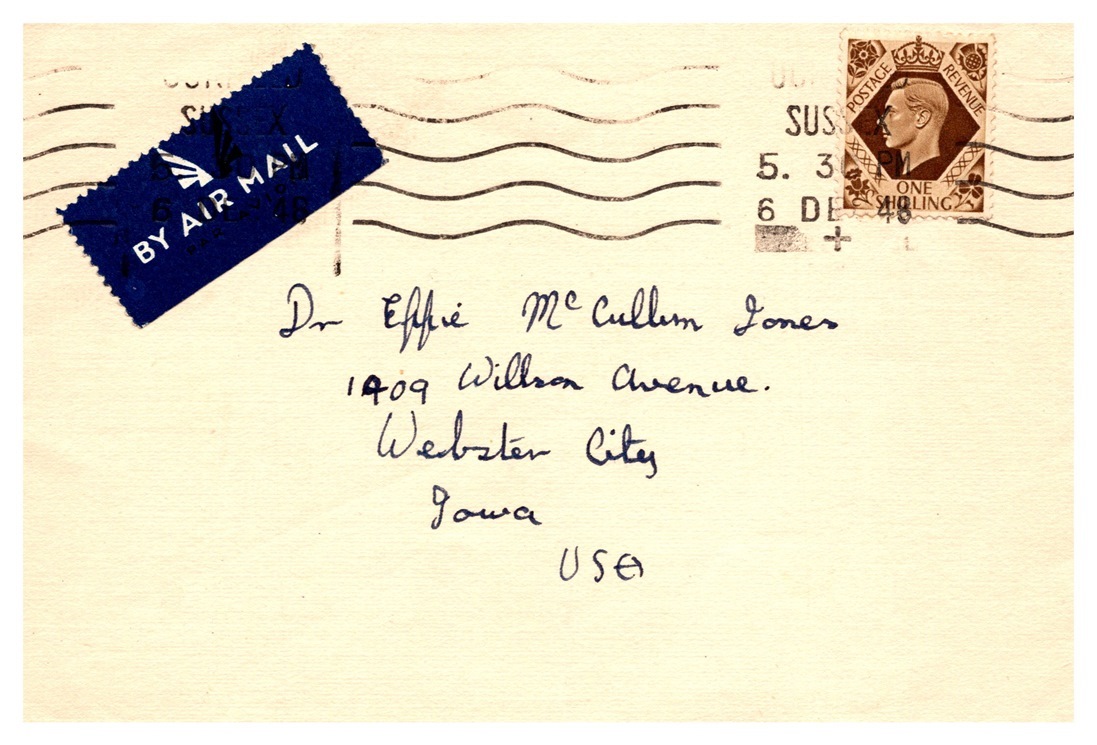 SUSSEX
5. PM
6 DEC 46
BY AIR MAIL
PAR
SUSSEX
5. 3 PM
6 DE 46
POSTAGE REVENUE
ONE
SHILLING
Dr Effie McCullum Jones
1409 Willson Avenue.
Webster City
Iowa
USA